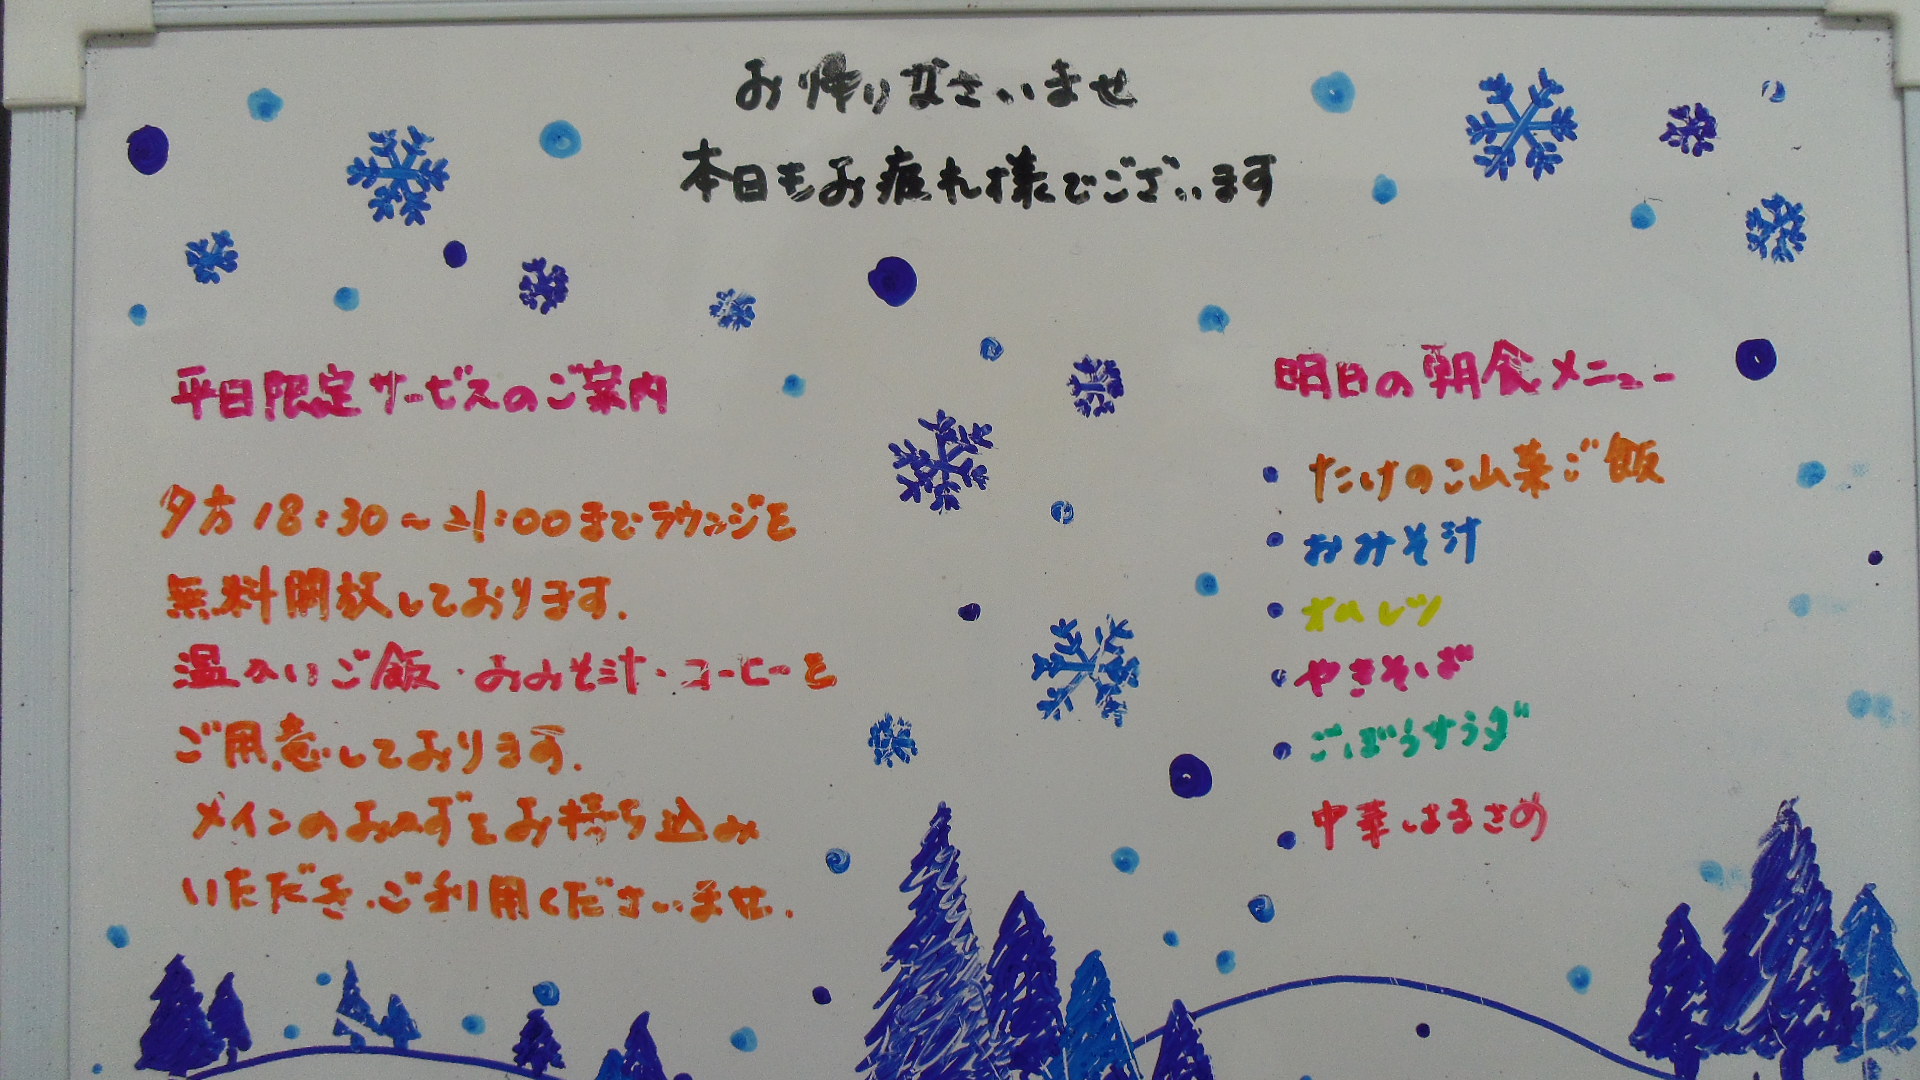 お帰りなさいませ
本日もお疲れ様でございます
平日限定サービスのご案内
夕方18:30~21:00までラウンジを
無料開放しております.
温かいご飯・おみそ汁・コーヒーを
ご用意しております.
メインのおかずをお持ち込み
いただき、ご利用くださいませ.
明日の朝食メニュー
• たけのこ山菜ご飯
• おみそ汁
• オムレツ
• やきそば
• ごぼうサラダ
• 中華はるさめ